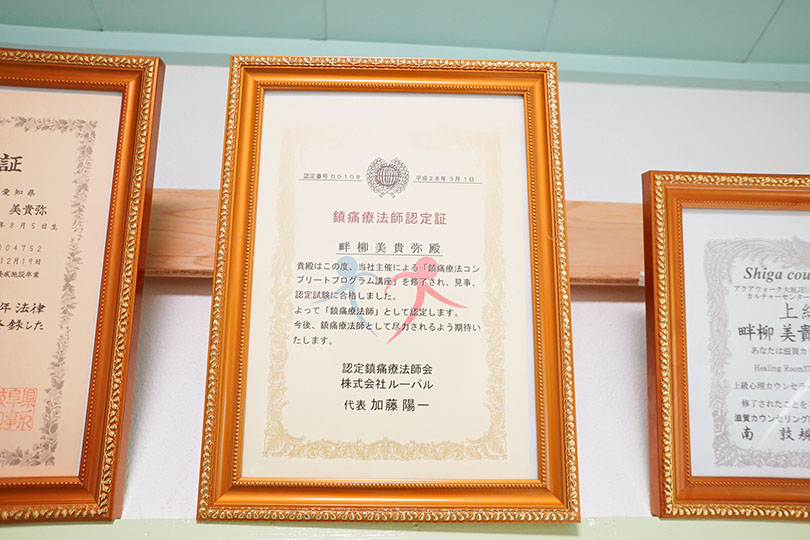 証
愛知県
美貴弥
年8月5日生
004752
12月19日
養成施設卒業
年法律
登録した
認定番号00108
平成28年3月1日
鎮痛療法師認定証
畔柳美貴弥殿
貴殿はこの度、当社主催による「鎮痛療法コン
プリートプログラム講座」を修了され、見事、
認定試験に合格しました。
よって「鎮痛療法師」として認定します。
今後、鎮痛療法師として尽力されるよう期待い
たします。
認定鎮痛療法師会
株式会社ルーパル
代表 加藤陽一
Shiga cou
アクアウォーク大垣
カルチャーセン
上級
畔柳 美貴
あなたは滋賀カ
Healing Room
上級心理カウンセ
修了されたことを
滋賀カウンセリング
南 鼓